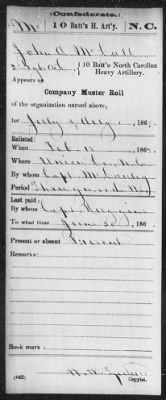 (Confederate.)
M 10 Batt'n H. Art'y. N. C.
John A. McCall
10 Batt'n North Carolina
Heavy Artillery.
Appears on
Company Muster Roll
of the organization named above,
for July & Aug, 186
Enlisted:
When Feb 186
Where Union Co. N.C.
By whom Capt
Period
Last paid:
By whom Capt
To what time June 30, 186
Present or absent Present
Remarks:
Book mark:
(642) Copyist.